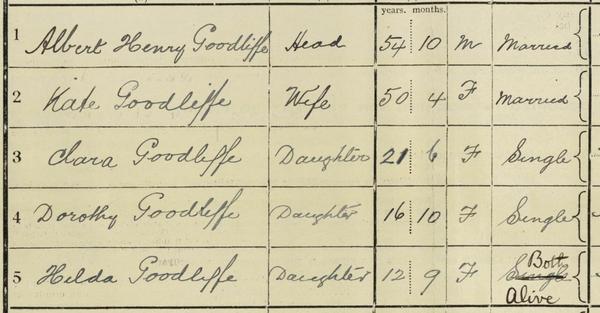 years. months.
1 Albert Henry Goodliffe Head 54 10 M Married
2 Kate Goodliffe Wife 50 4 F Married
3 Clara Goodliffe Daughter 21 6 F Single
4 Dorothy Goodliffe Daughter 16 10 F Single
5 Hilda Goodliffe Daughter 12 9 F Single Both
Alive